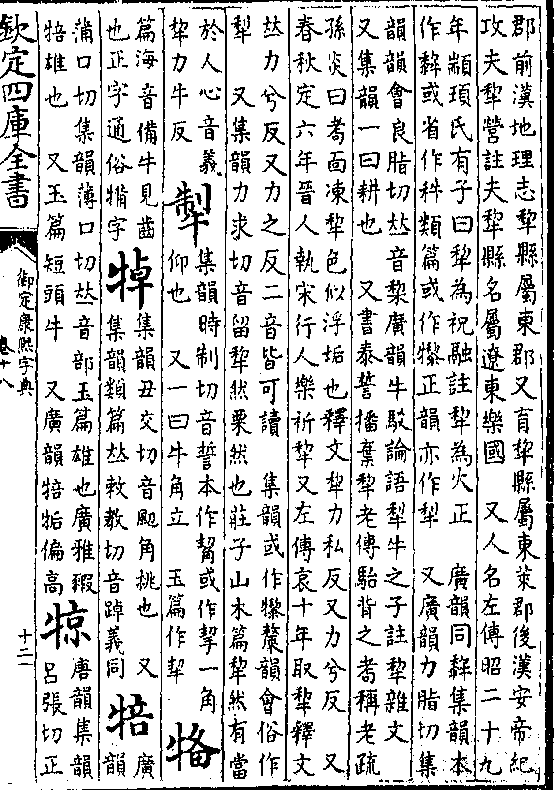 郡前漢地理志犂縣屬東郡又育犂縣屬東萊郡後漢安帝紀
攻夫犂營註夫犂縣名屬遼東樂國　又人名左傳昭二十九
年顓頊氏有子曰犂為祝融註犂為火正　廣韻同𤛿集韻本
作𤛿或省作秚類篇或作㹈正韻亦作犁　又廣韻力脂切集
韻韻會良脂切𠀤音棃廣韻牛駁論語犂牛之子註犂雜文
又集韻一曰耕也　又書泰誓播棄犂老傳駘背之耇稱老疏
孫炎曰耇面凍犂色似浮垢也釋文犂力私反又力兮反　又
春秋定六年晉人執宋行人樂祈犂又左傳哀十年取犂釋文
𠀤力兮反又力之反二音皆可讀　集韻或作㹈釐韻會俗作
犁　又集韻力求切音留犂然栗然也莊子山木篇犂然有當
於人心音義
犂力牛反
㸷
集韻時制切音誓本作觢或作挈一角
仰也　又一曰牛角立　玉篇作㸷
㹂
篇海音備牛見齒
也正字通俗犕字
㹿
集韻丑交切音颩角挑也　又
集韻類篇𠀤敕教切音踔義同
犃
廣
韻
蒲口切集韻薄口切𠀤音部玉篇雄也廣雅犌
犃雄也　又玉篇短頭牛　又廣韻犃㸸偏高
㹁
唐韻集韻
呂張切正
欽定四庫全書
御定康熙字典
卷十八
十二